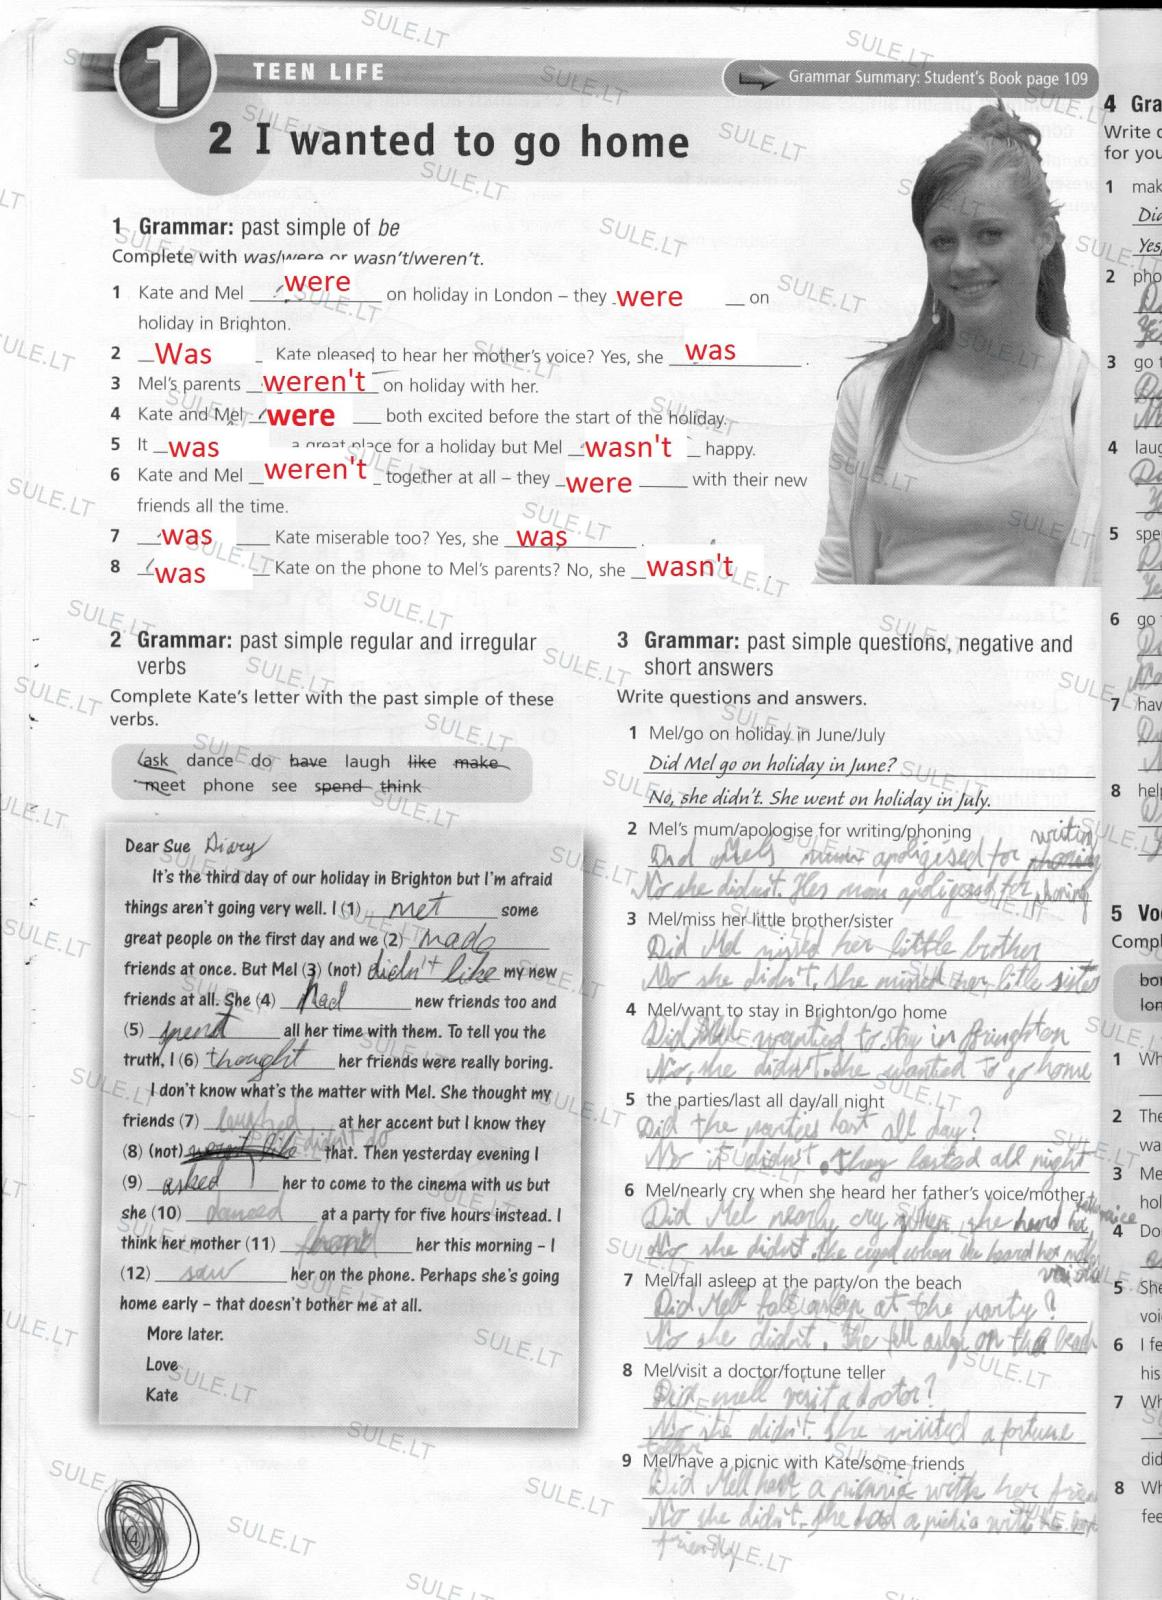 1 TEEN LIFE
Grammar Summary: Student's Book page 109
2 I wanted to go home
1 Grammar: past simple of be
Complete with was/were or wasn't/weren't.
1 Kate and Mel were on holiday in London – they were on
holiday in Brighton.
2 Was Kate pleased to hear her mother's voice? Yes, she was .
3 Mel's parents weren't on holiday with her.
4 Kate and Mel were both excited before the start of the holiday.
5 It was a great place for a holiday but Mel wasn't happy.
6 Kate and Mel weren't together at all – they were with their new
friends all the time.
7 was Kate miserable too? Yes, she was .
8 was Kate on the phone to Mel's parents? No, she wasn't
2 Grammar: past simple regular and irregular
verbs
Complete Kate's letter with the past simple of these
verbs.
ask dance do have laugh like make
meet phone see spend think
Dear Sue Diary
It's the third day of our holiday in Brighton but I'm afraid
things aren't going very well. I (1) met some
great people on the first day and we (2) made
friends at once. But Mel (3) (not) didn't like my new
friends at all. She (4) had new friends too and
(5) spent all her time with them. To tell you the
truth, I (6) thought her friends were really boring.
I don't know what's the matter with Mel. She thought my
friends (7) laughed at her accent but I know they
(8) (not) didn't do that. Then yesterday evening I
(9) asked her to come to the cinema with us but
she (10) danced at a party for five hours instead. I
think her mother (11) her this morning – I
(12) saw her on the phone. Perhaps she's going
home early – that doesn't bother me at all.
More later.
Love
Kate
3 Grammar: past simple questions, negative and
short answers
Write questions and answers.
1 Mel/go on holiday in June/July
Did Mel go on holiday in June?
No, she didn't. She went on holiday in July.
2 Mel's mum/apologise for writing/phoning
Did Mels mum apoligised for writing
No she didn't. Her mom apoligised for phoning
3 Mel/miss her little brother/sister
Did Mel missed her little brother
No she didn't. She missed her little sister
4 Mel/want to stay in Brighton/go home
Did Mel wanted to stay in Brington
No, she didn't. She wanted to go home
5 the parties/last all day/all night
Did the parties last all day?
No it didn't. They lasted all night
6 Mel/nearly cry when she heard her father's voice/mother
Did Mel nearly cry when she heard her
No she didn't. She cryed when she heard her mother
7 Mel/fall asleep at the party/on the beach
Did Mell fall asleep at the party?
No she didn't. She fell aslep on the beach
8 Mel/visit a doctor/fortune teller
Did mell visit a doctor?
No she didn't. She visited a fortune
teller
9 Mel/have a picnic with Kate/some friends
Did Mell have a picnic with her
No she didn't. She had a picnic with
4 Gra
Write
for you
1 mak
Did
Yes,
2 pho
3 go t
4 laug
5 spe
6 go
7 hav
8 help
5 Vo
Compl
bor
lon
1 Wh
2 The
wa
3 Me
hol
4 Do
5 She
voi
6 I fe
his
7 Wh
did
8 Wh
fee
SULE.LT